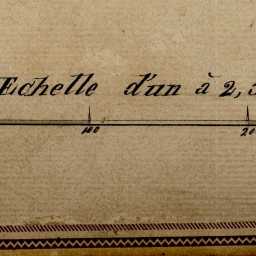 Echelle d'un à 2,
100